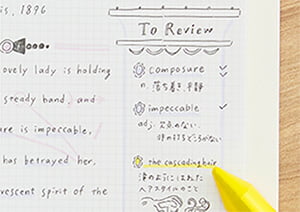 is, 1896
ovely lady is holding
steady band, and
ure is impeccable,
has betrayed her.
vescent spirit of the
To Review
composure
n. 落ち着き、平静
impeccable
adj. 欠点のない、
非の打ちどころがない
the cascading hair
滝のように流れた
ヘアスタイルのこと